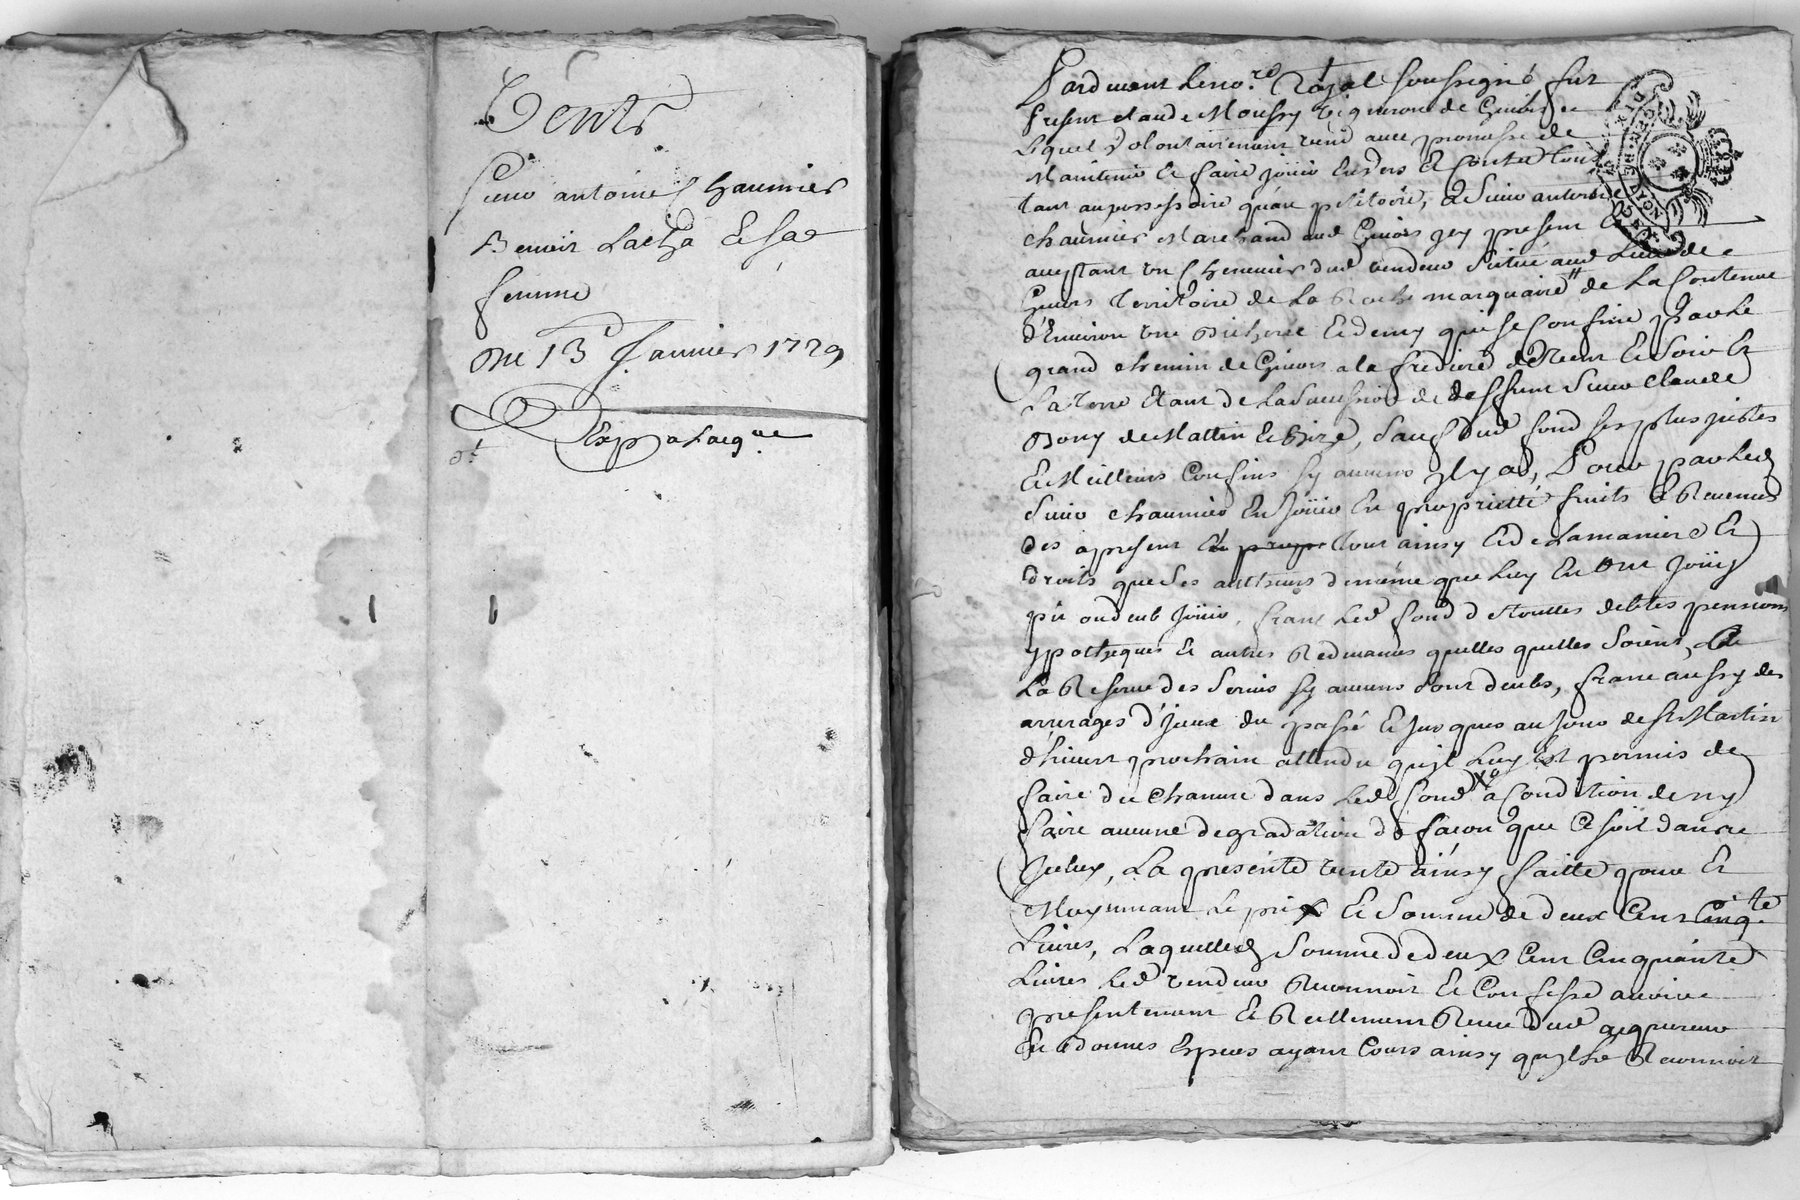 Vente
Sieur antoine Chaumier
Benoit Lacha et sa
femme
Du 13e Janvier 1729
Exp a Lacque
Pardevant Le no.re Royal soussigné fut
present claude Moussy vigneron de Givors
Lequel volontairement vend avec promesse de
Maintenir et faire jouir Envers et Contre tous
tant au possessoire qu'au petitoire, a Sieur antoine
chaumier Marchand aud Givors icy present et
acceptant un Chenevier dud vendeur situé aud Lieu de
Givors territoire de La Roche marquaire # de La Contenue
d'Environ une Bicherée Et demy qui se Confine par Le
grand chemin de Givors a la frediere de vent Et Soir Et
La terre Etant de La Succession de deffunt Sieur Claude
Bony de Mattin Et Bize, Sauf dud fond ses plus justes
Et Meilleurs Confins sy aucuns il y a, Pour par Led
Sieur chaumier En Jouir En proprietté fruits et Revenus
des apresent tout ainsy Et de La maniere Et
droits que Ses autheurs de meme que Luy En ont Jouy
pü ou deub Jouir, franc Led fond de touttes debtes pensions
ypotheques Et autres Redevances quelles quelles Soient, a
La Reserve des Servis sy aucuns sont deubs, franc aussy des
arrerages d'iceux du passé Et Jusques au Jour de St Martin
d'hivert prochain attendu qu'il Luy Est permis de
faire du Chanvre dans Led fond a Condition de ny
faire aucune degradation de façon que Ce soit dans
Icelux, La presente vente ainsy faitte pour Et
Moyennant Le prix Et Somme de deux Cent Cinq.te
Livres, Laquelle Somme de deux Cent Cinquante
Livres Led vendeur Reconnoit Et Confesse avoir
presentement Et Reellement Receu dud acquereur
En Bonnes Especes ayant Cours ainsy qu'il Le Reconnoit
GEN. DE LYON